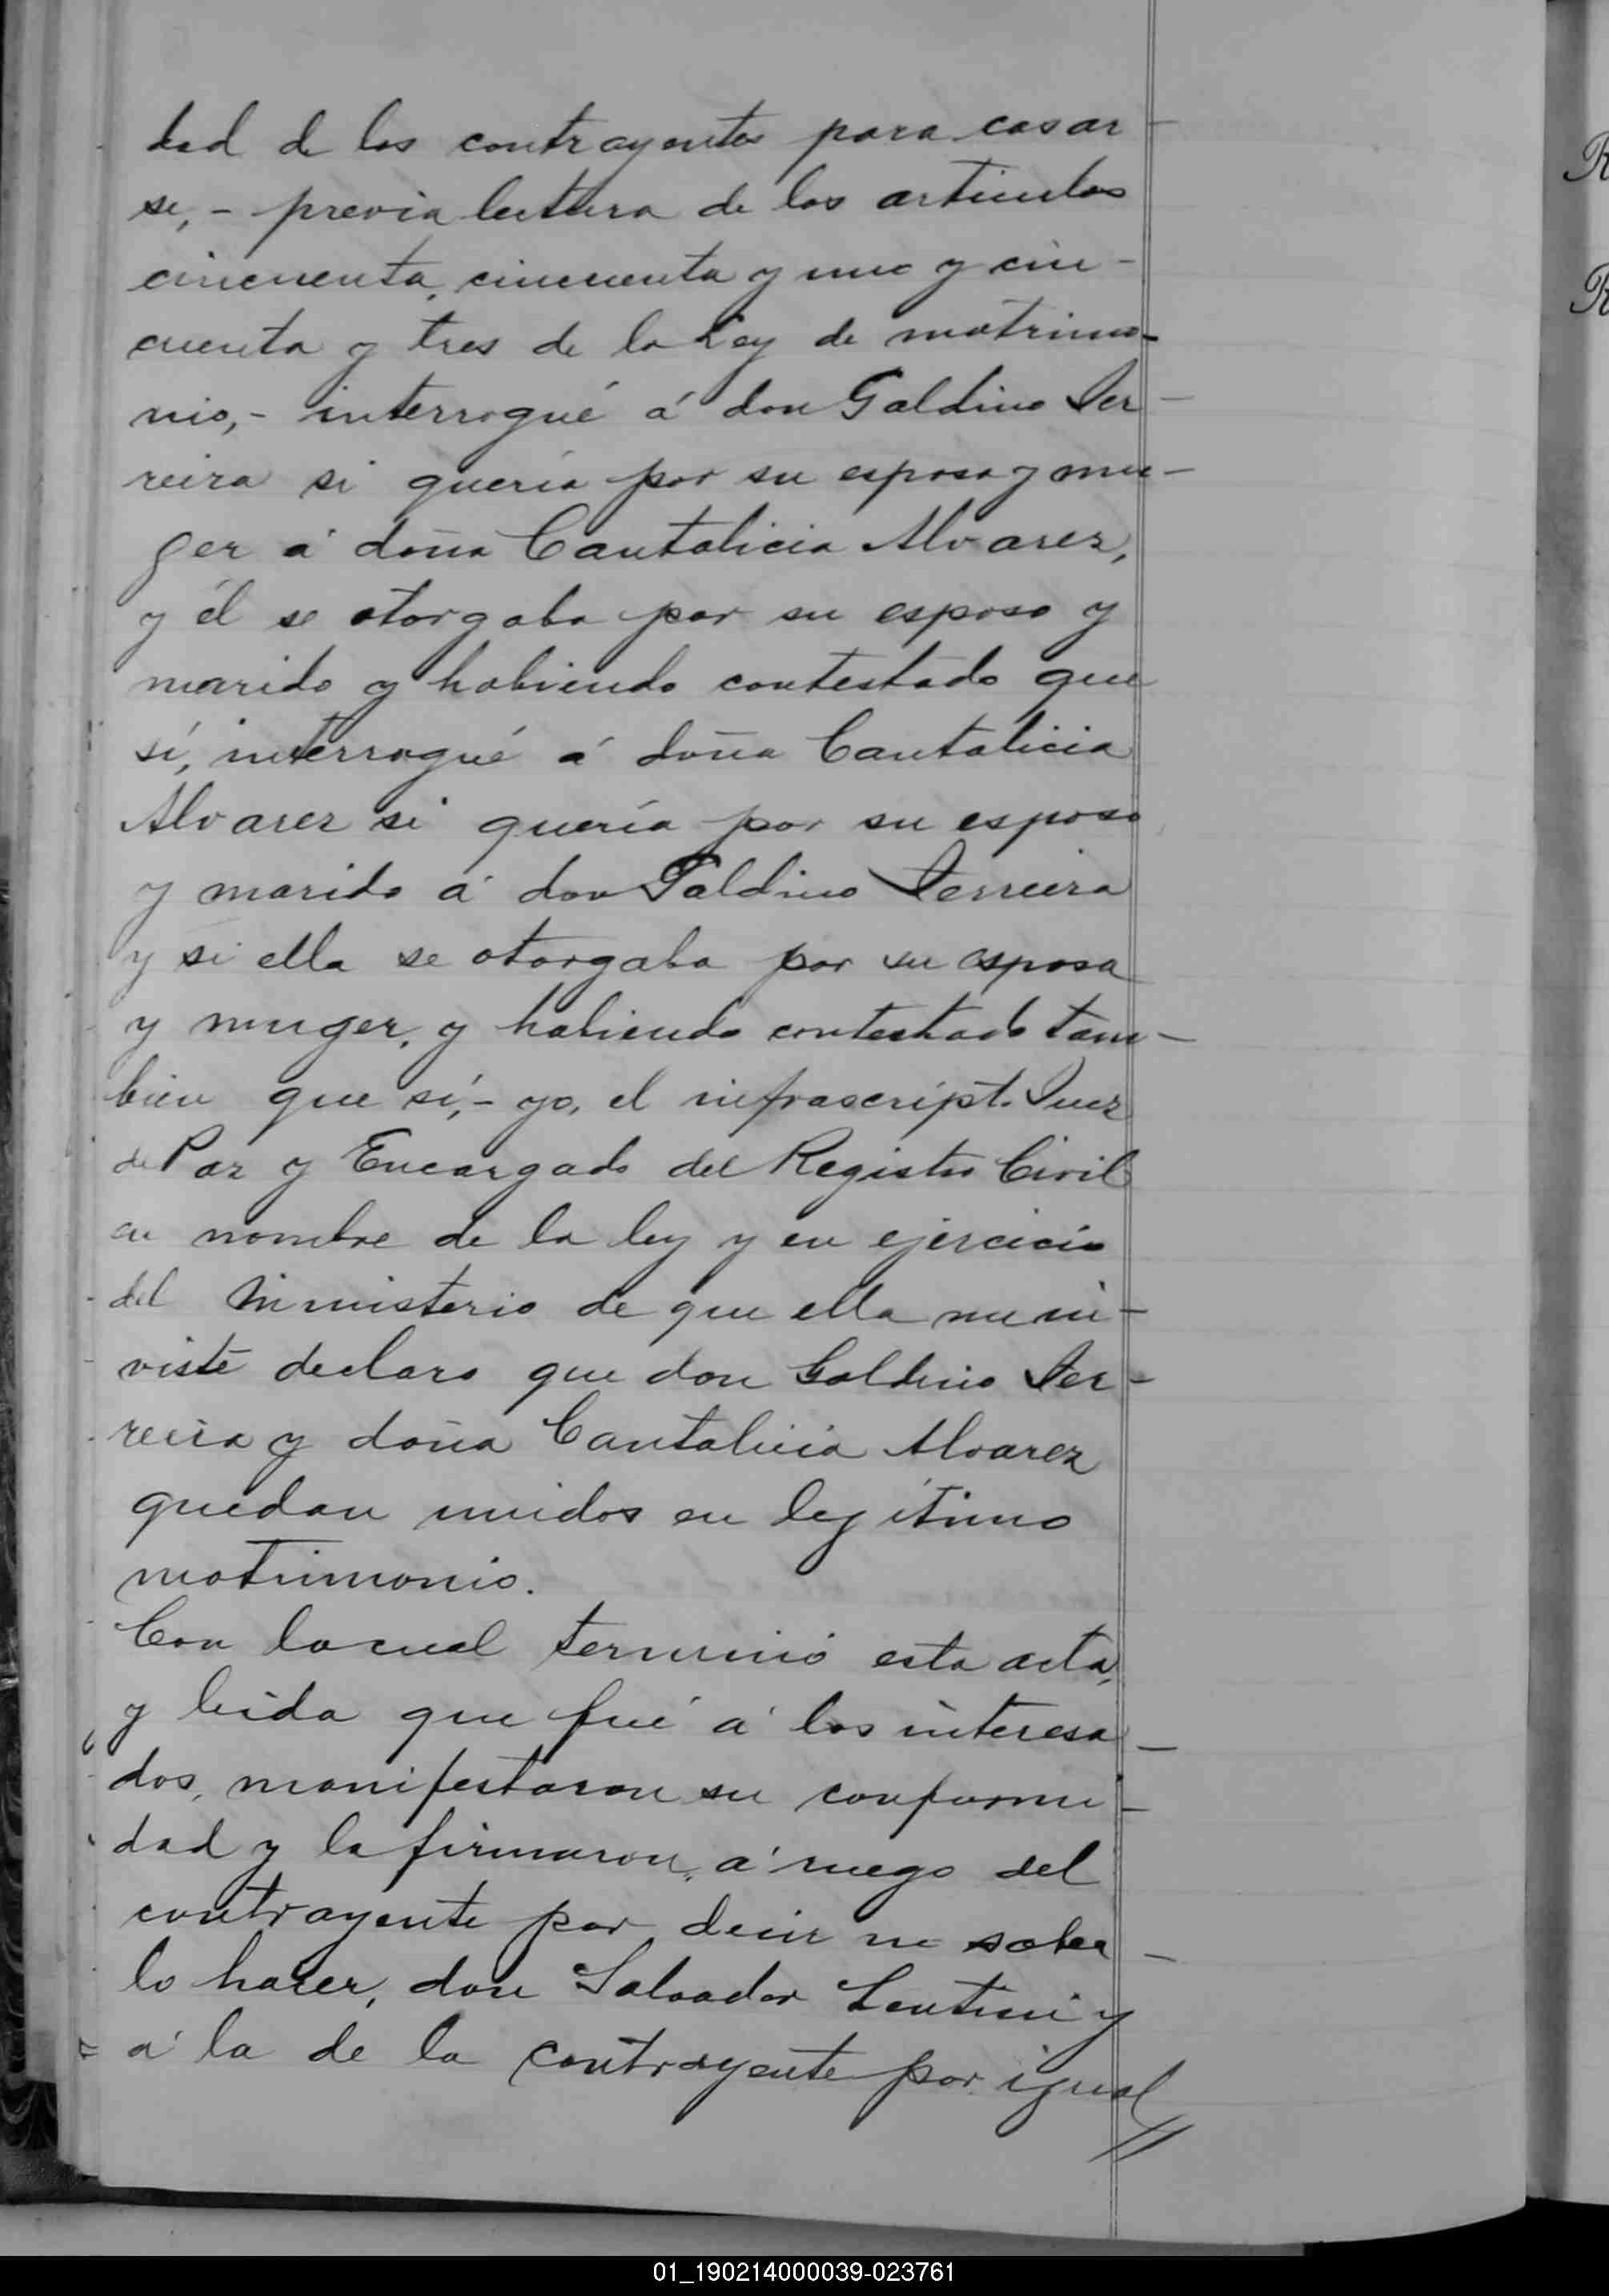 dad de los contrayentes para casar
se,- previa lectura de los articulos
cincuenta, cincuenta y uno y cin-
cuenta y tres de la Ley de matrimo-
nio,- interrogué á don Galdino Fer-
reira si quería por su esposa y mu-
ger á doña Cantalicia Alvarez,
y él se otorgaba por su esposo y
marido y habiendo contestado que
sí, interrogué á doña Cantalicia
Alvarez si quería por su esposo
y marido á don Galdino Ferreira
y si ella se otorgaba por su esposa
y muger, y habiendo contestado tam-
bien que sí,- yo, el infrascripto Juez
de Paz y Encargado del Registro Civil
en nombre de la ley y en ejercicio
del ministerio de que ella me in-
viste declaro que don Galdino Fer-
reira y doña Cantalicia Alvarez
quedan unidos en legítimo
matrimonio.
Con lo cual terminó esta acta,
y leída que fué á los interesa-
dos, manifestaron su conformi-
dad y la firmaron, á ruego del
contrayente por decir no saber-
lo hacer, don Salvador Lentini y
á la de la contrayente por igual
R
R
01_190214000039-023761